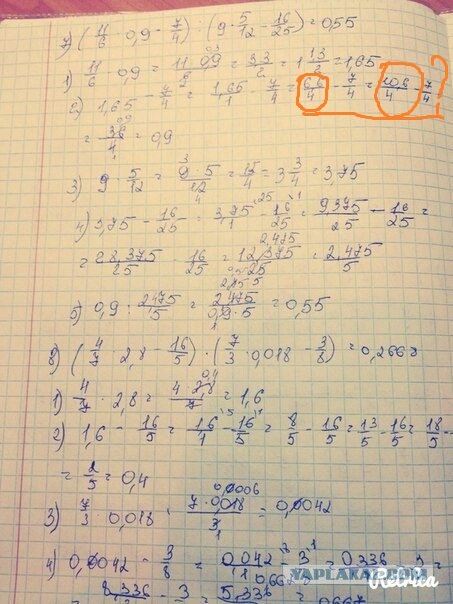 7) (11/6 · 0,9 - 7/4) : (9 · 5/12 - 16/25) = 0,55
1) 11/6 · 0,9 = 11 · 0,9/6 = 3,3/2 = 1 13/2 = 1,65
2) 1,65 - 7/4 = 1,65/1 - 7/4 = 6,6/4 - 7/4 = 10,6/4 - 7/4 ?
= 3,6/4 = 0,9
3) 9 · 5/12 = 9 · 5/12 = 15/4 = 3 3/4 = 3,75
4) 3,75 - 16/25 = 3,75/1 - 16/25 = 9,375/25 - 16/25 =
= 28,375/25 - 16/25 = 12,375/25 = 2,475/5
5) 0,9 : 2,475/5 = 2,475/0,9 · 5 = 0,55
8) (4/7 · 2,8 - 16/5) · (7/3 · 0,018 - 3/8) = 0,2668
1) 4/7 · 2,8 = 4 · 2,8/7 = 1,6
2) 1,6 - 16/5 = 1,6/1 - 16/5 = 8/5 - 16/5 = 13/5 - 16/5 = 18/5 -
= 2/5 = 0,4
3) 7/3 · 0,018 = 7 · 0,018/3 = 0,0042
4) 0,0042 - 3/8 = 0,042 - 3 = 0,336 - 3 =
8,336 - 3 = 5,336
YAPLAKAL.COM
Retrica